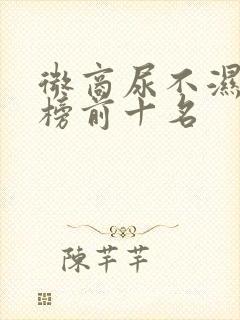 微高尿不濕
榜前十名
陳芊芊